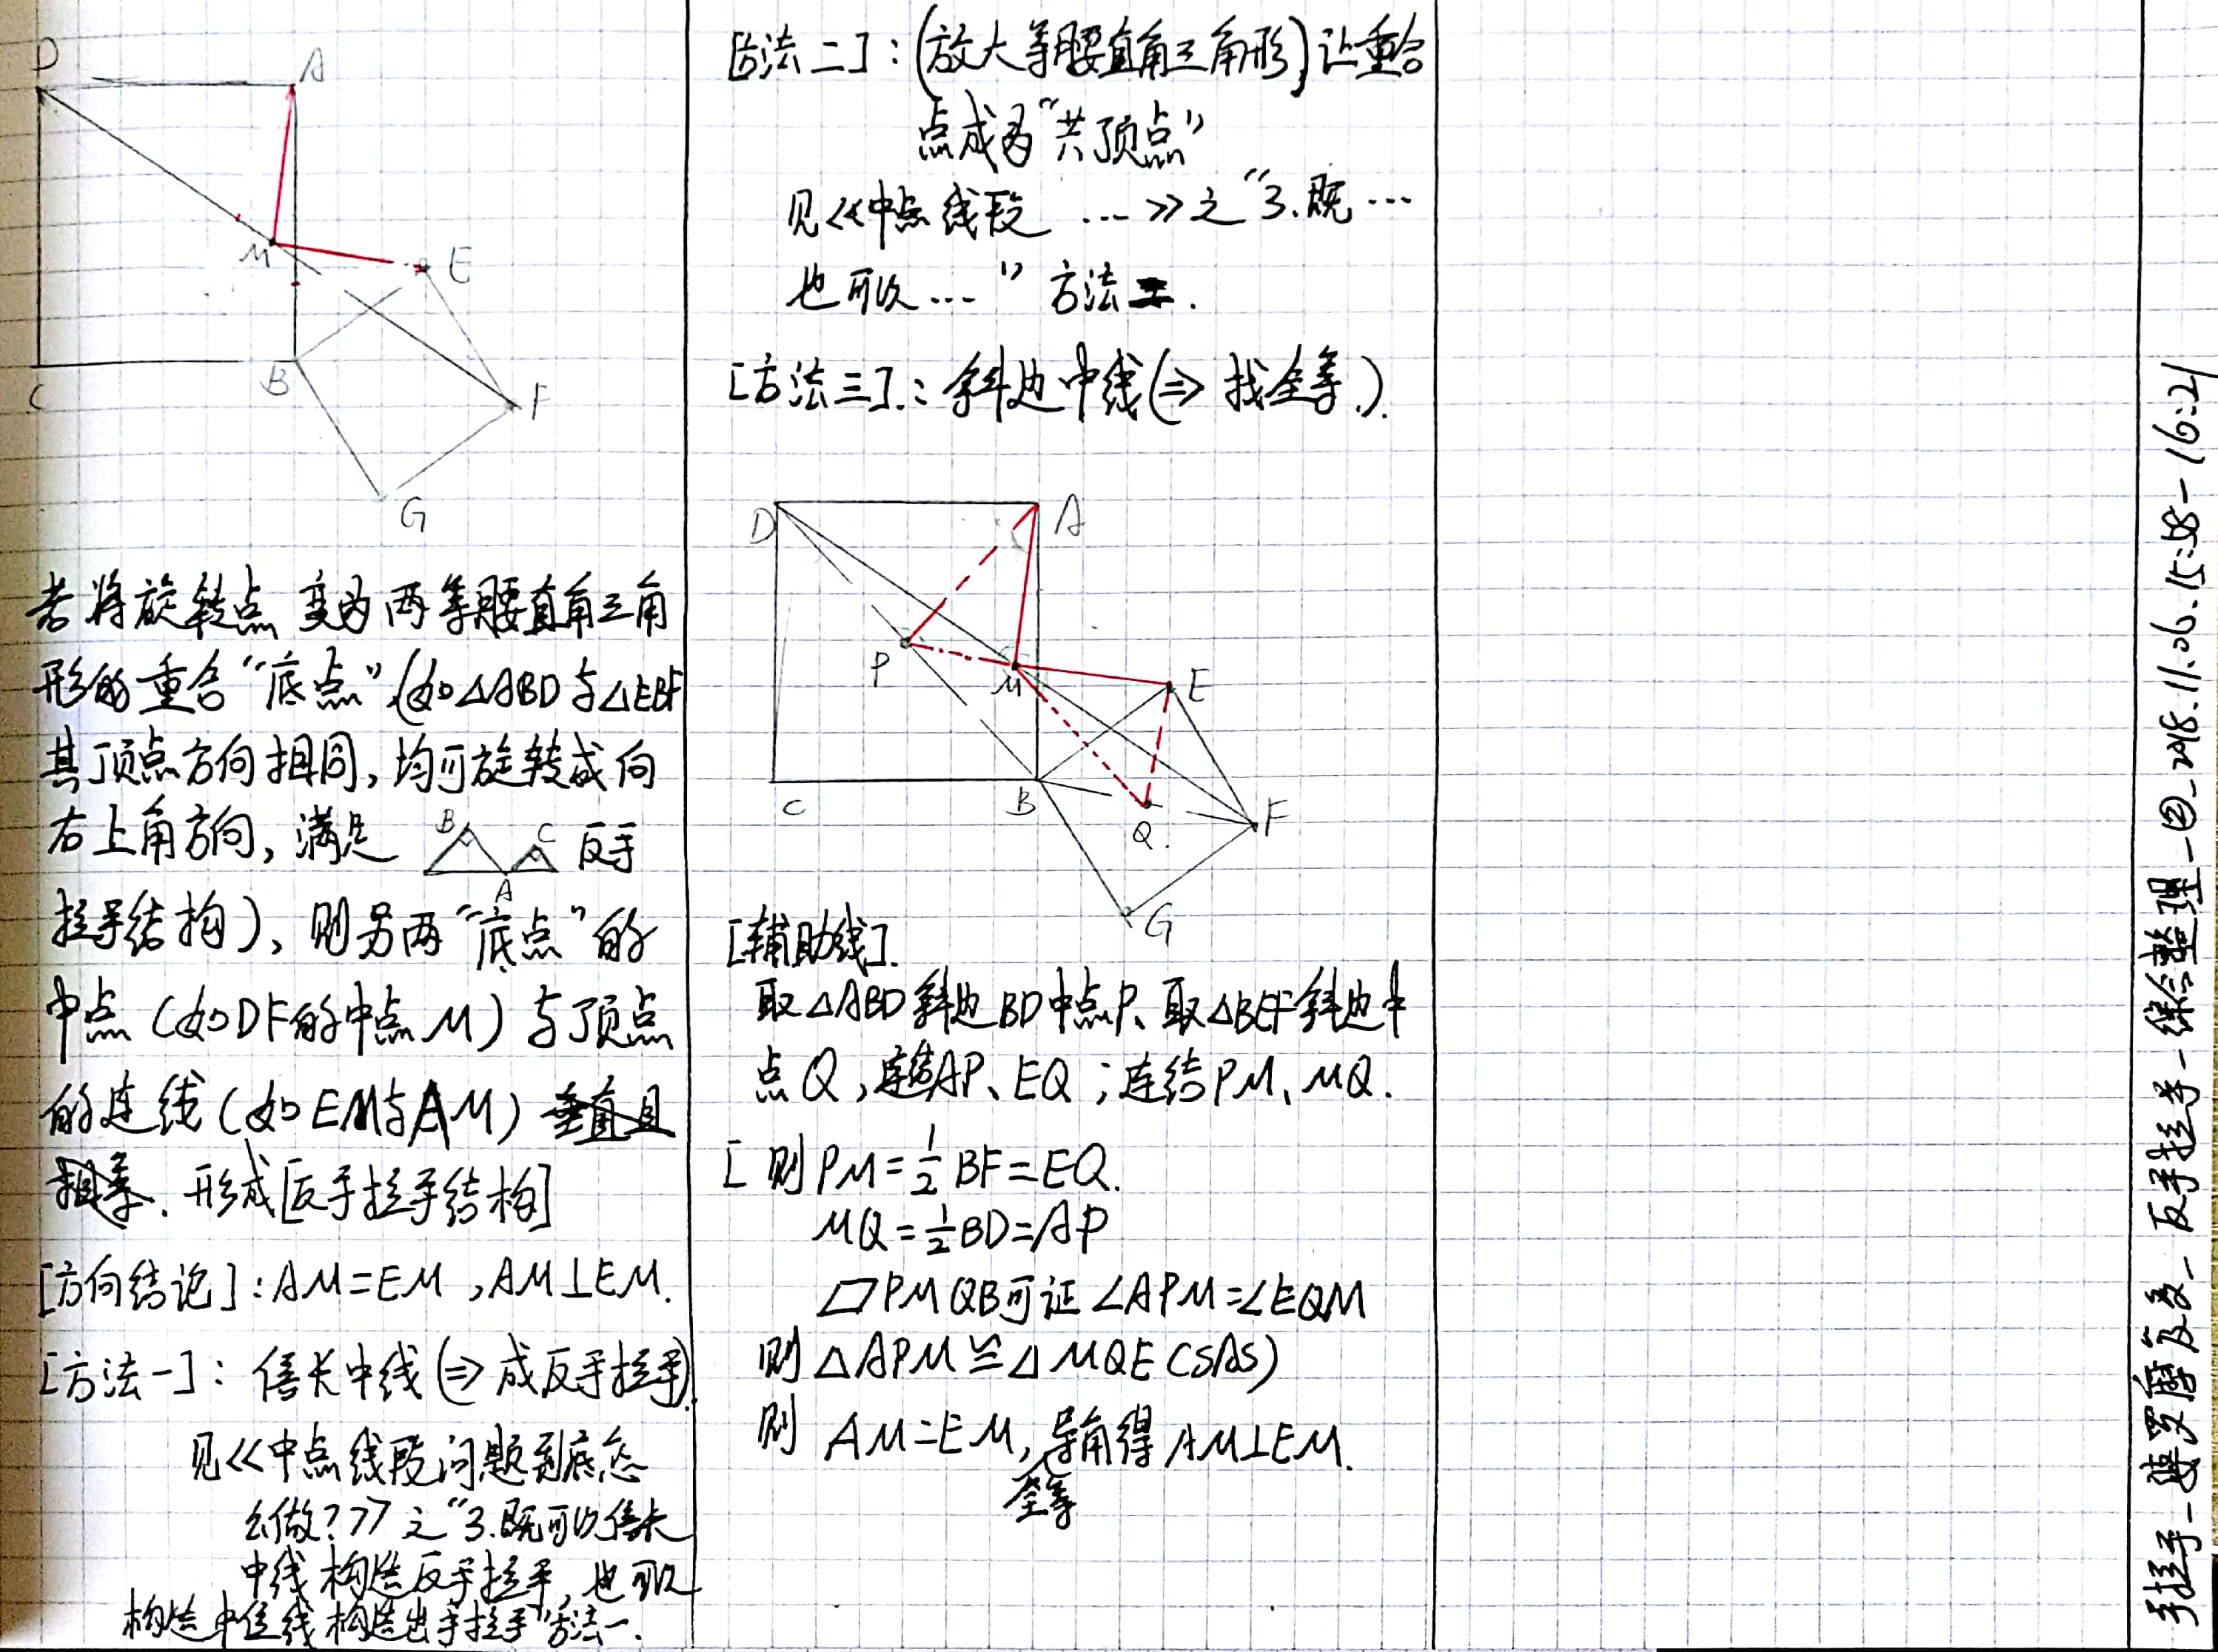 D
A
M
E
C
B
F
G
若将旋转点变为两等腰直角三角
形的重合“底点”(如△ABD与△EBF
其顶点方向相同,均可旋转成向
右上角方向,满足 B C A 反手
拉手结构),则另两“底点”的
中点(如DF的中点M)与顶点
的连线(如EM与AM)垂直且
相等.形成[反手拉手结构]
[方向结论]:AM=EM,AM⊥EM.
[方法一]:倍长中线(⇒成反手拉手).
见《中点线段问题到底怎
么做?》之“3.既可以倍长
中线构造反手拉手,也可以
构造中位线构造出手拉手”方法一.
[方法二]:(放大等腰直角三角形)让重合
点成为“共顶点”
见《中点线段 …》之“3.既…
也可以…”方法二.
[方法三].:斜边中线(⇒找全等.).
D
A
P
M
E
C
B
Q.
F
G
[辅助线].
取△ABD斜边BD中点P、取△BEF斜边中
点Q,连结AP、EQ;连结PM、MQ.
[则PM=1/2BF=EQ.
MQ=1/2BD=AP
▱PMQB可证∠APM=∠EQM
则△APM≌△MQE(SAS)
则 AM=EM,导角得AM⊥EM.
全等
手拉手_婆罗摩笈多_反手拉手_综合整理_②_2018.11.06.15:58-16:21